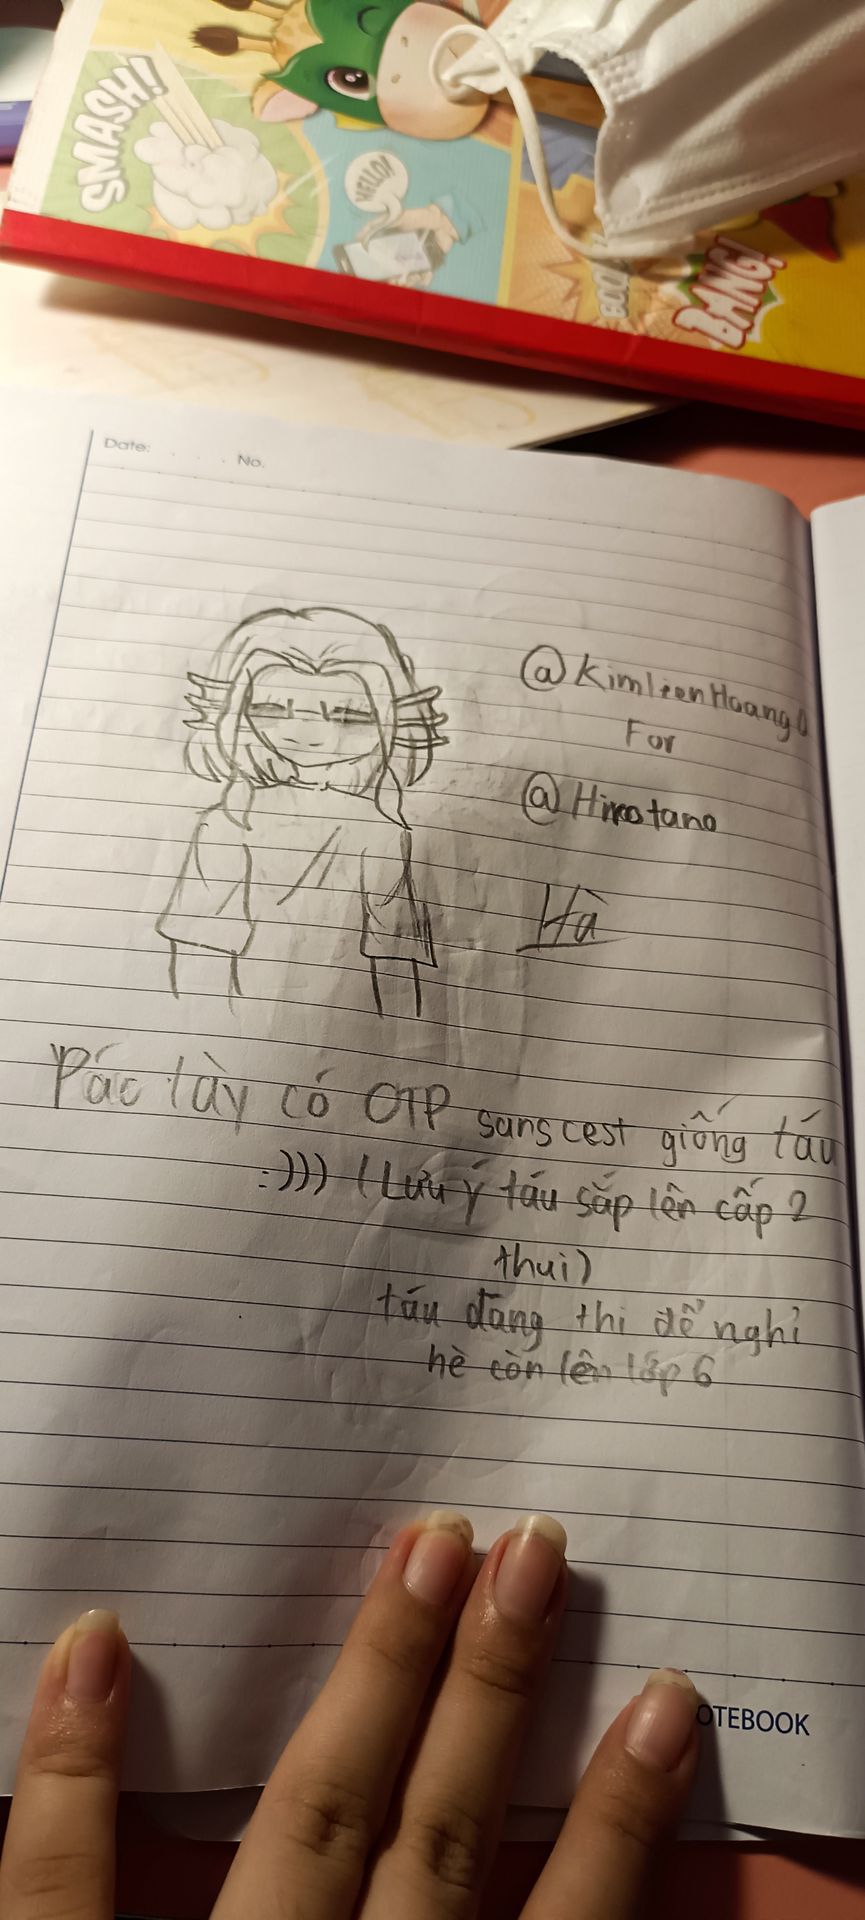 SMASH!
HELLO!
BANG!
Date: . . . . No.
@KimlienHoang0
For
@Hirotano
Hà
Pác tày có OTP sanscest giống táu
:))) (Lưu ý táu sắp lên cấp 2
thui)
táu đang thi để nghỉ
hè còn lên lớp 6
OTEBOOK